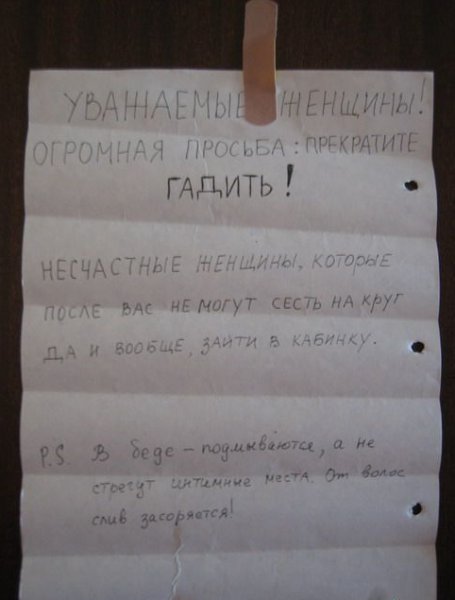 УВАЖАЕМЫЕ ЖЕНЩИНЫ!
ОГРОМНАЯ ПРОСЬБА: ПРЕКРАТИТЕ
ГАДИТЬ!
НЕСЧАСТНЫЕ ЖЕНЩИНЫ, КОТОРЫЕ
ПОСЛЕ ВАС НЕ МОГУТ СЕСТЬ НА КРУГ
ДА И ВООБЩЕ, ЗАЙТИ В КАБИНКУ.
P.S. В беде – подмываются, а не
стрегут интимные места. От волос
слив засоряется!